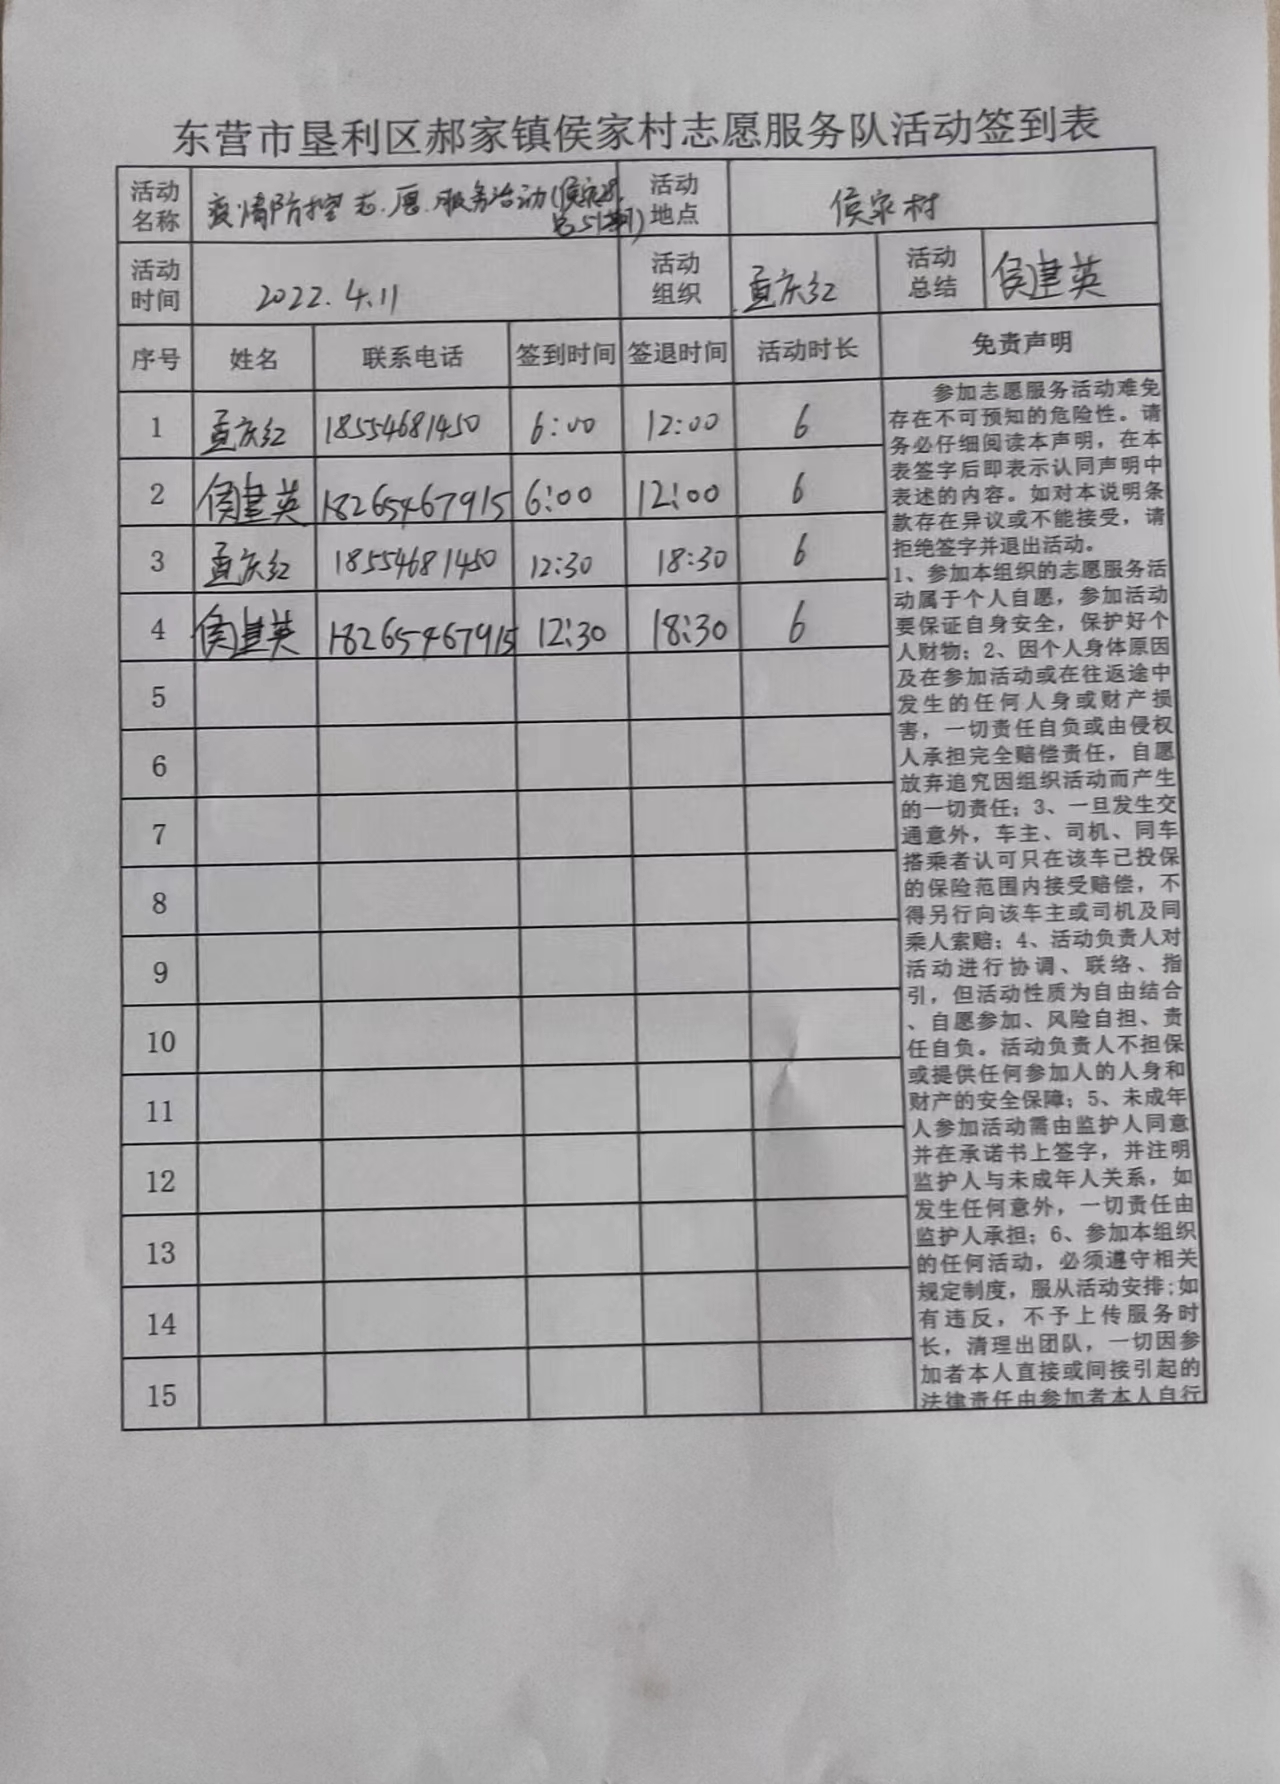 东营市垦利区郝家镇侯家村志愿服务队活动签到表
活动名称 疫情防控志愿服务活动(侯家村 活动地点 侯家村
活动时间 2022.4.11 活动组织 孟庆红 活动总结 侯建英
序号 姓名 联系电话 签到时间 签退时间 活动时长 免责声明
1 孟庆红 18554681450 6:00 12:00 6
2 侯建英 18265467915 6:00 12:00 6
3 孟庆红 18554681450 12:30 18:30 6
4 侯建英 18265467915 12:30 18:30 6
5
6
7
8
9
10
11
12
13
14
15
参加志愿服务活动难免
存在不可预知的危险性。请
务必仔细阅读本声明，在本
表签字后即表示认同声明中
表述的内容。如对本说明条
款存在异议或不能接受，请
拒绝签字并退出活动。
1、参加本组织的志愿服务活
动属于个人自愿，参加活动
要保证自身安全，保护好个
人财物；2、因个人身体原因
及在参加活动或在往返途中
发生的任何人身或财产损
害，一切责任自负或由侵权
人承担完全赔偿责任，自愿
放弃追究因组织活动而产生
的一切责任；3、一旦发生交
通意外，车主、司机、同车
搭乘者认可只在该车已投保
的保险范围内接受赔偿，不
得另行向该车主或司机及同
乘人索赔；4、活动负责人对
活动进行协调、联络、指
引，但活动性质为自由结合
、自愿参加、风险自担、责
任自负。活动负责人不担保
或提供任何参加人的人身和
财产的安全保障；5、未成年
人参加活动需由监护人同意
并在承诺书上签字，并注明
监护人与未成年人关系，如
发生任何意外，一切责任由
监护人承担；6、参加本组织
的任何活动，必须遵守相关
规定制度，服从活动安排;如
有违反，不予上传服务时
长，清理出团队，一切因参
加者本人直接或间接引起的
法律责任由参加者本人自行